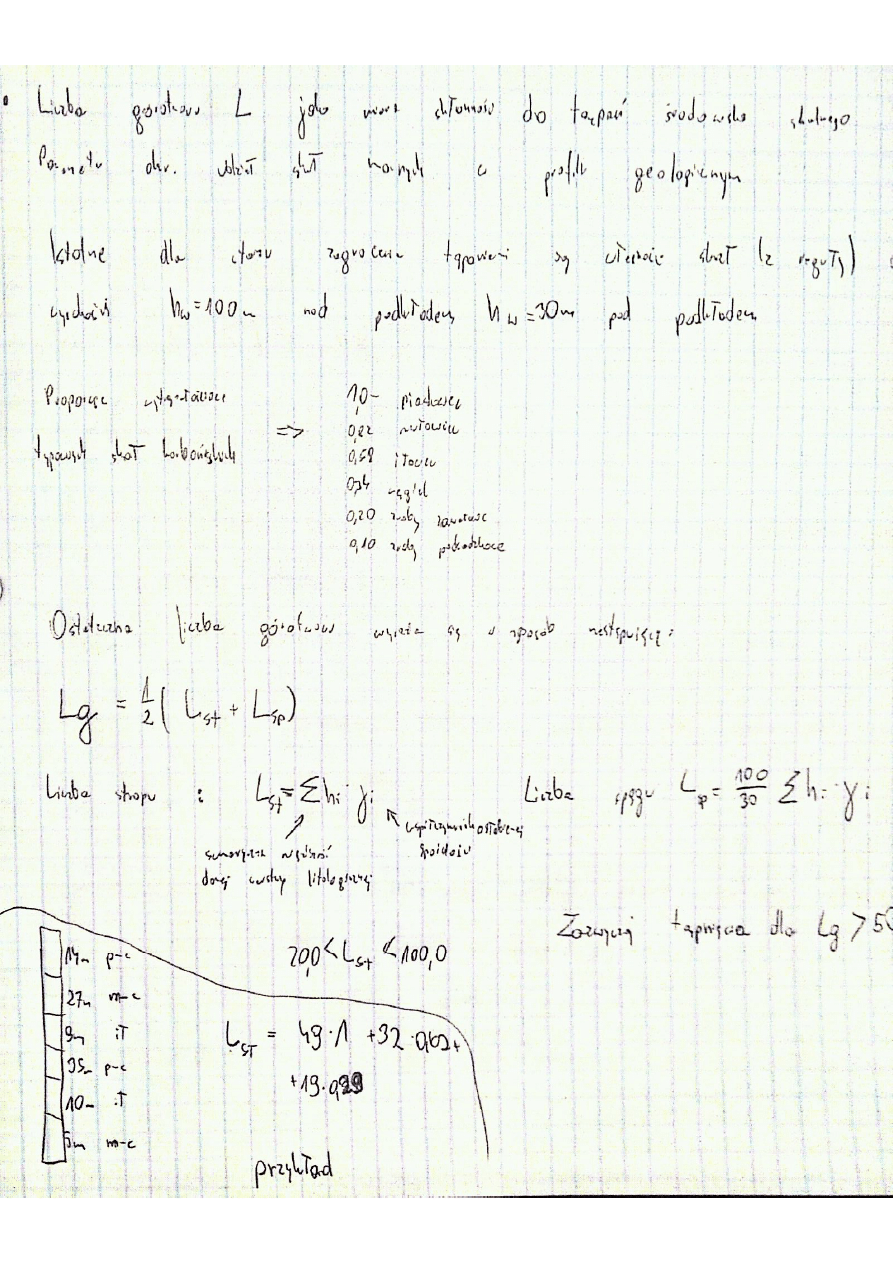 Liczba górotworu L jako miara skłonności do tąpań środowiska skalnego
Parametr okr. udział skał mocnych w profilu geologicznym
Istotne dla stanu zagrożenia tąpaniami są skał (z reguły)
wysokości hw=100m nad podkładem, hw=30m pod podkładem
Proporcje wytrzymałościowe
typowych skał karbońskich =>
1,0- piaskowiec
0,82 mułowiec
0,58 iłowiec
0,34 węgiel
0,20 zroby zawałowe
0,10 zroby podsadzkowe
Ostateczna liczba górotworu wyraża się w sposób następujący:
Lg = 1/2 ( Lst + Lsp)
Liczba stropu : Lst = Σ hi · γi
Liczba spągu Lsp = 100/30 Σ hi · γi
współczynnik osłabienia
spoistości
sumaryczna miąższość
danej warstwy litologicznej
Zazwyczaj tąpnięcia dla Lg > 50
20,0 < Lst < 100,0
14m p-c
27m m-c
9m ił
35m p-c
10m ił
5m m-c
LST = 49·1 + 32·0,62+
+19·0,29
przykład